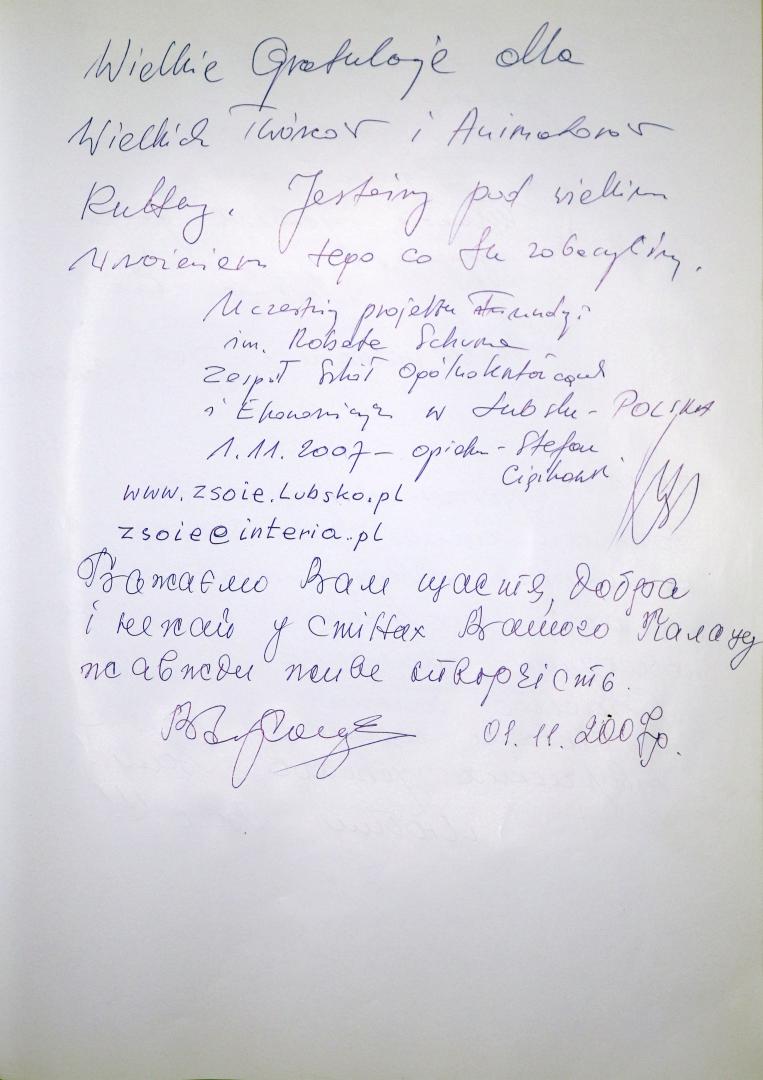 Wielkie Gratulacje dla
Wielkich Twórców i Animatorów
Kultury. Jesteśmy pod wielkim
wrażeniem tego co tu zobaczyliśmy.
Uczestnicy projektu Fundacji
im. Roberta Schumana
Zespół Szkół Ogólnokształcących
i Ekonomicznych w Lubsku - POLSKA
1.11.2007 - opiekun - Stefan
www.zsoie.Lubsko.pl
zsoie@interia.pl
Бажаємо Вам щастя, добра
і нехай у стінах Вашого Палацу
завжди живе творчість.
01.11.2007р.